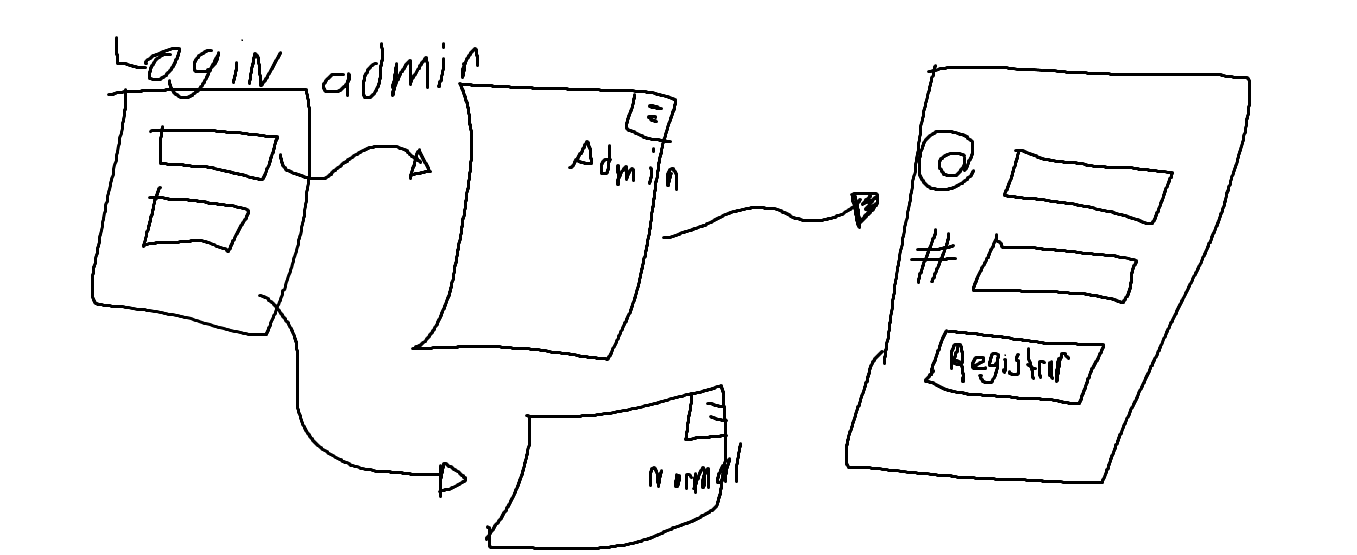 LOGIN admin
Admin
@
#
Registrar
normal